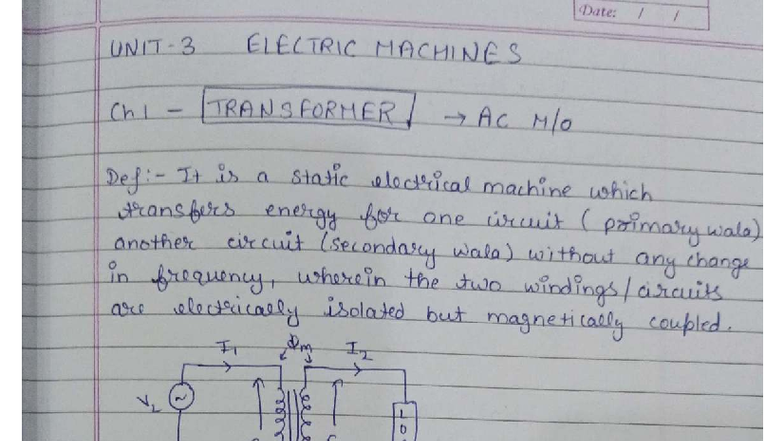 Date: / /
UNIT-3 ELECTRIC MACHINES
Ch 1 - TRANSFORMER → AC M/c
Def:- It is a static electrical machine which
transfers energy for one circuit (primary wala)
another circuit (secondary wala) without any change
in frequency, wherein the two windings/circuits
are electrically isolated but magnetically coupled.
I1 Φm I2
V1 ~
L
O